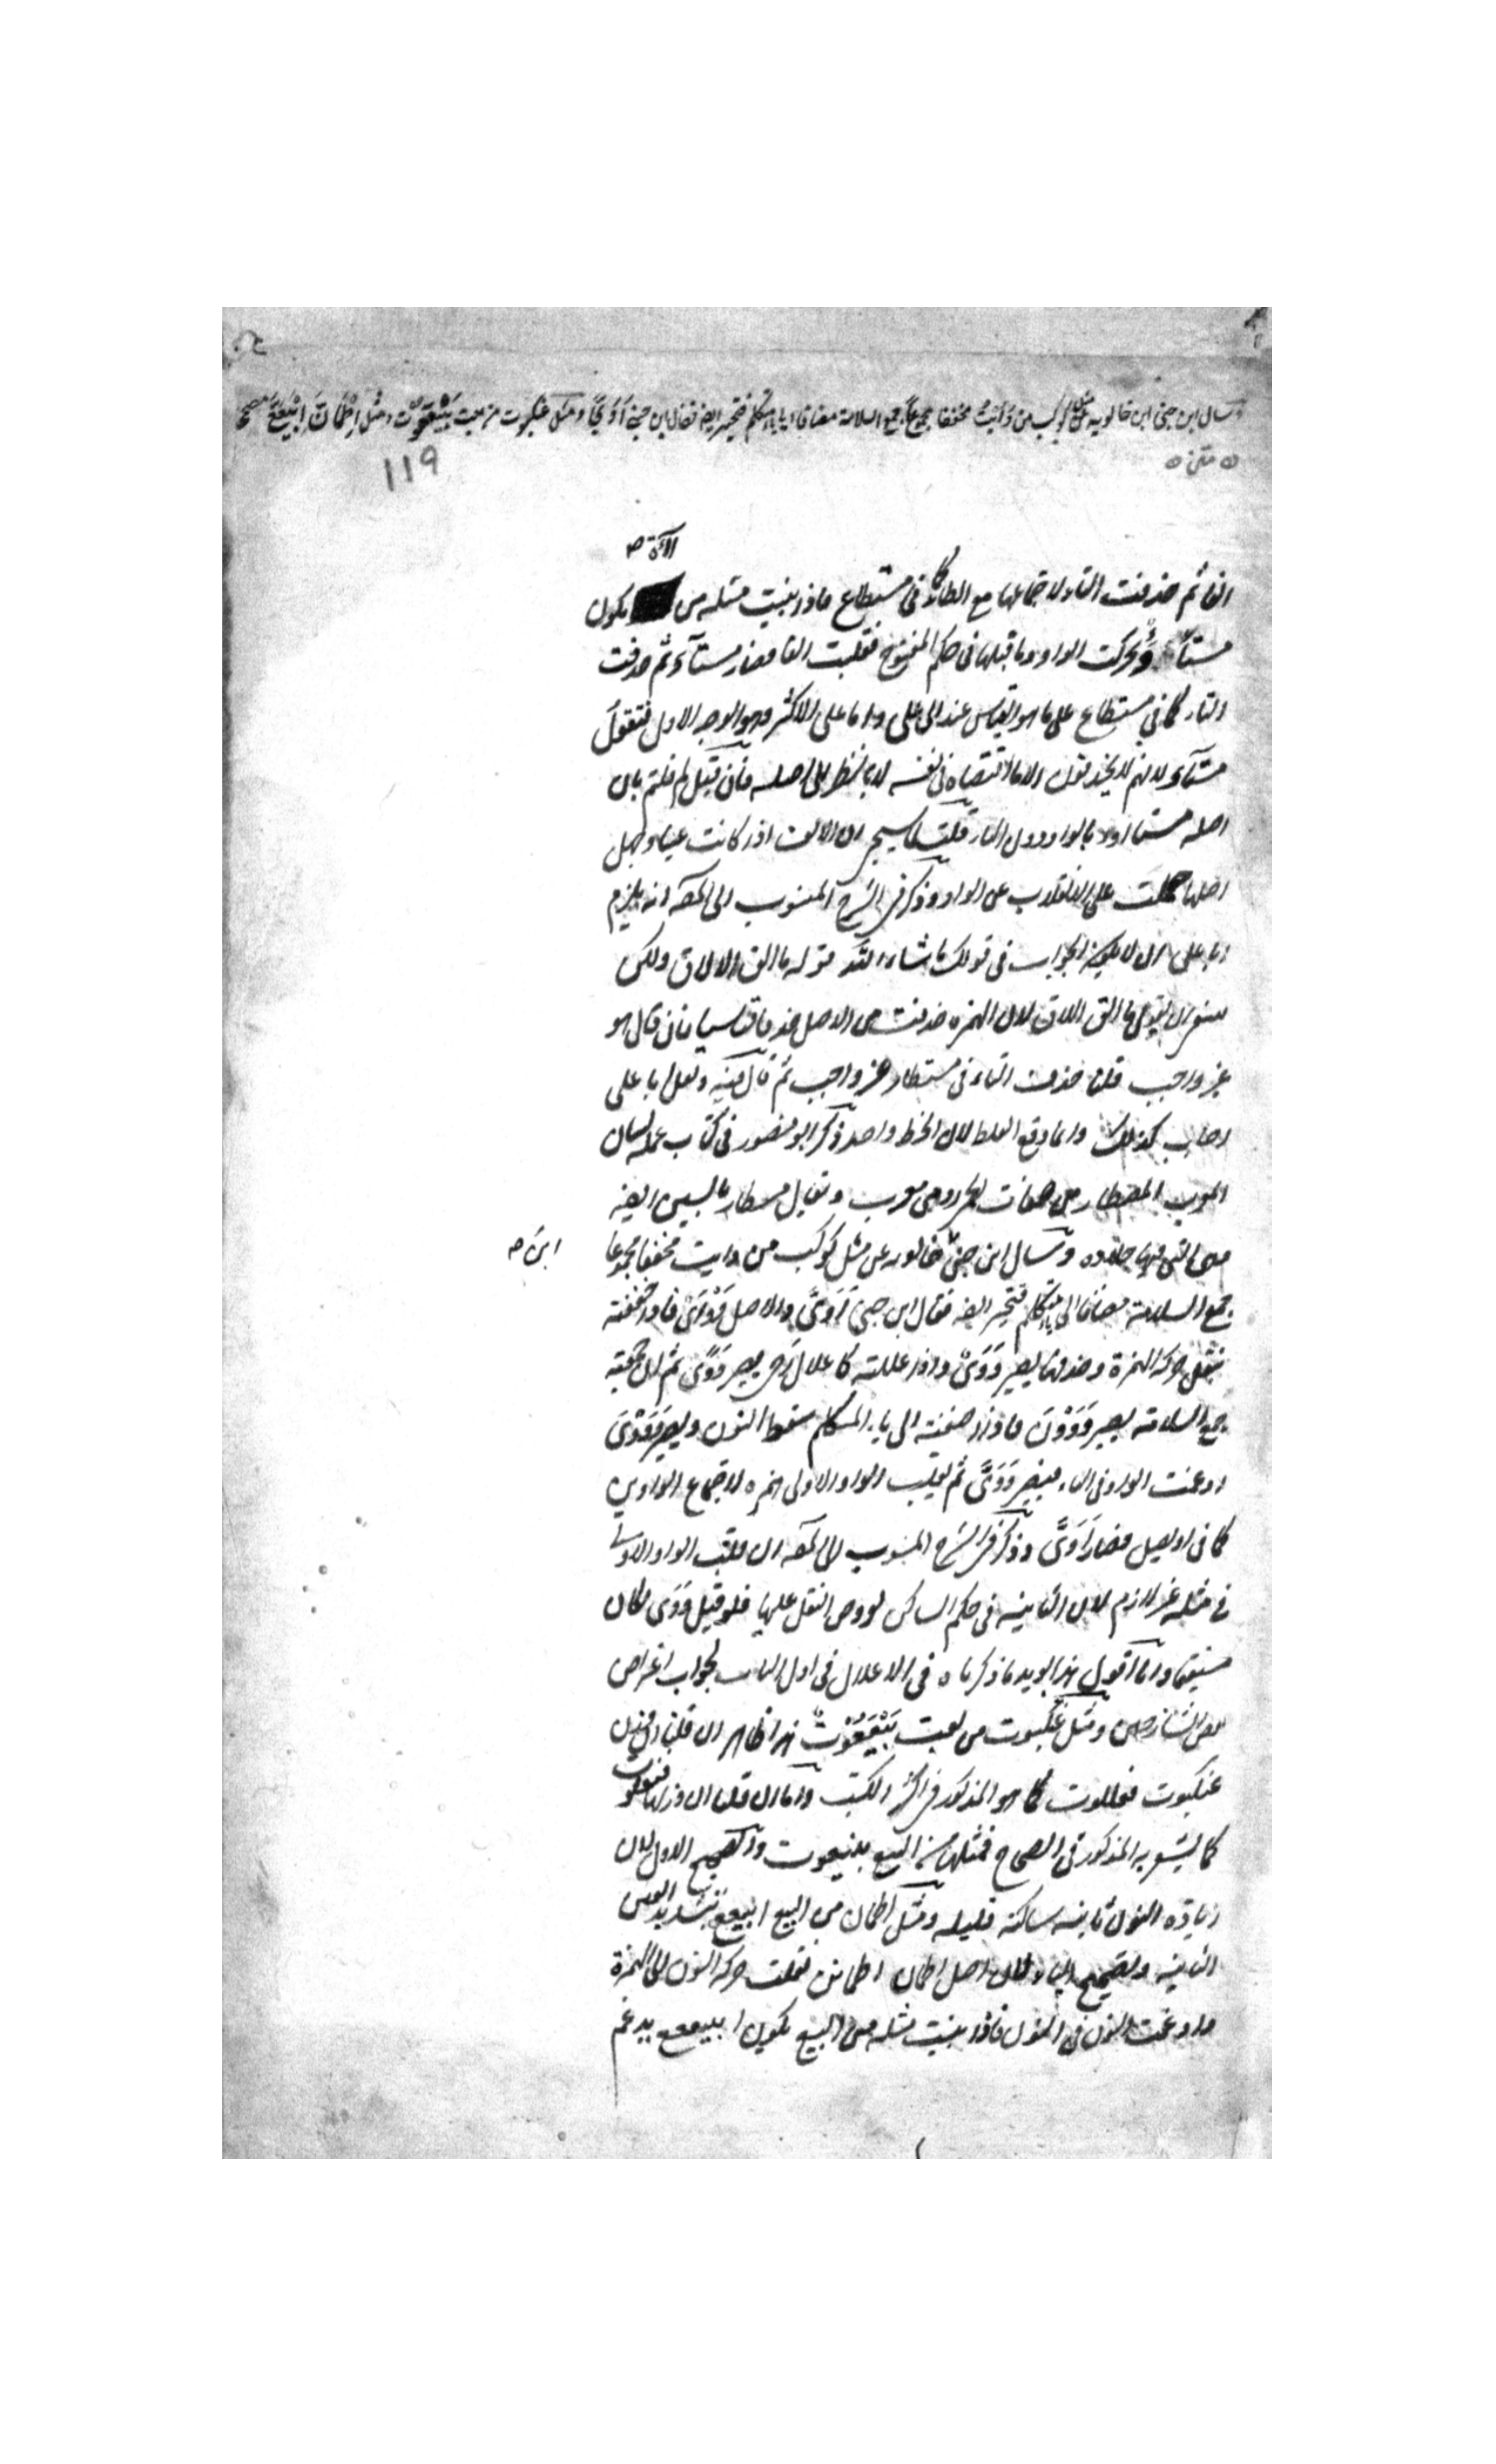 وسال ابن جنى ابن خالويه عن مثل كوكب من وَأيتُ مخففا مجموعاً جمع السلامة مضافا الى ياء المتكلم فتحير ايضا فقال ابن جنى اَوَىَّ ومثل عنكبوت من بعت بَيْعَعُوْت ومثل اِطْمَاَنَّ اِبْيَعَعَّ مصححا
متن
١١٩
الآءة صح
الفا ثم حذفت التاء لاجتماعها مع الطاء كما فى مستطاع فاذا بنيت مثله من يكون
مستأ وَء تحركت الواو وما قبلها فى حكم المفتوح فقلبت الفا فصار مستآء ثم حذفت
التاء كما فى مستطاع على ما هو القياس عند ابى على واما على الاكثر وهو الوجه الاول فتقول
مستآء لانهم لا يحذفون الا ما اقتضاه فى نفسه لا بالنظر الى اصله فان قيل لم قلتم بان
اصله مستاوء بالواو دون الياء قلت لما سيجئ ان الالف اذا كانت عينا وجهل
اصلها حملت على الانقلاب عن الواو وذكر فى الشرح المنسوب الى المصـ انه يلزم
ابا على ان لا يكون الجواب فى قولك ما شاء اللّه قوله ما الق الالاق ولكن
ان يقول ما الق اللاق لان الهمزة حذفت من الاصل حذفا قياسيا فان قال هو
غير واجب قلنا حذف التاء فى مستطار غير واجب ثم قال فيه ولعل ابا على
اجاب كذلك وانما وقع الغلط لان الخط واحد ذكر ابو منصور فى كتاب علم لسان
العرب المصطار من صفات الخمر رومى معرب ويقال مسطار بالسين ايضا
هى التى فيها حلاوه وسال ابن جنى خالويه عن مثل كوكب من وايت مخففا مجموعا
ابن صح
جمع السلامة مضافا الى ياء المتكلم فتحير ايضا فقال ابن جنى اَوَىَّ والاصل وَوْأَىٌ فاذا خففته
بنقل حركة الهمزة وحذفها يصير وَوَىٌ واذا عللته كاعلال رحى يصير وَوًى ثم ان جمعته
جمع السلامة يصير وَوَوْنَ فاذا اضفته الى ياء المتكلم سقط النون ويصير وَوَوْىَ
ادغمت الواو فى الياء فيصير وَوَىَّ ثم تقلب الواو الاولى همزه لاجتماع الواوين
كما فى اويصل فصار اَوَىَّ وذكر فى الشرح المنسوب الى المصـ ان قلب الواو الاولى
فى مثله غير لازم لان الثانية فى حكم الساكن لعروض النقل عليها فلو قيل وَوَى لكان
مستقيما وانا اقول هذا يويد ما ذكرناه فى الاعلال فى اول الباب لجواب اعتراض
بعض الشارحين ومثل عنكبوت من بعت بَيْعَعُوْتٌ هذا ظاهر ان قلنا ان وزن
عنكبوت فعللوت كما هو المذكور فى اكثر الكتب واما ان قلنا ان وزنها فنعلوت
كما يشعر به المذكور فى الصحاح فمثلها من البيع بنيعوت والصحيح الاول لان
زيادة النون ثانية ساكنة قليله ومثل اطمان من البيع ابيععّ بتشديد العين
الثانية وتصحيح الياء ولان اصل اطمان اطمانن نقلت حركة النون الى الهمزة
وادغمت النون فى النون فاذا بنيت مثله من البيع يكون ابيععع يدغم